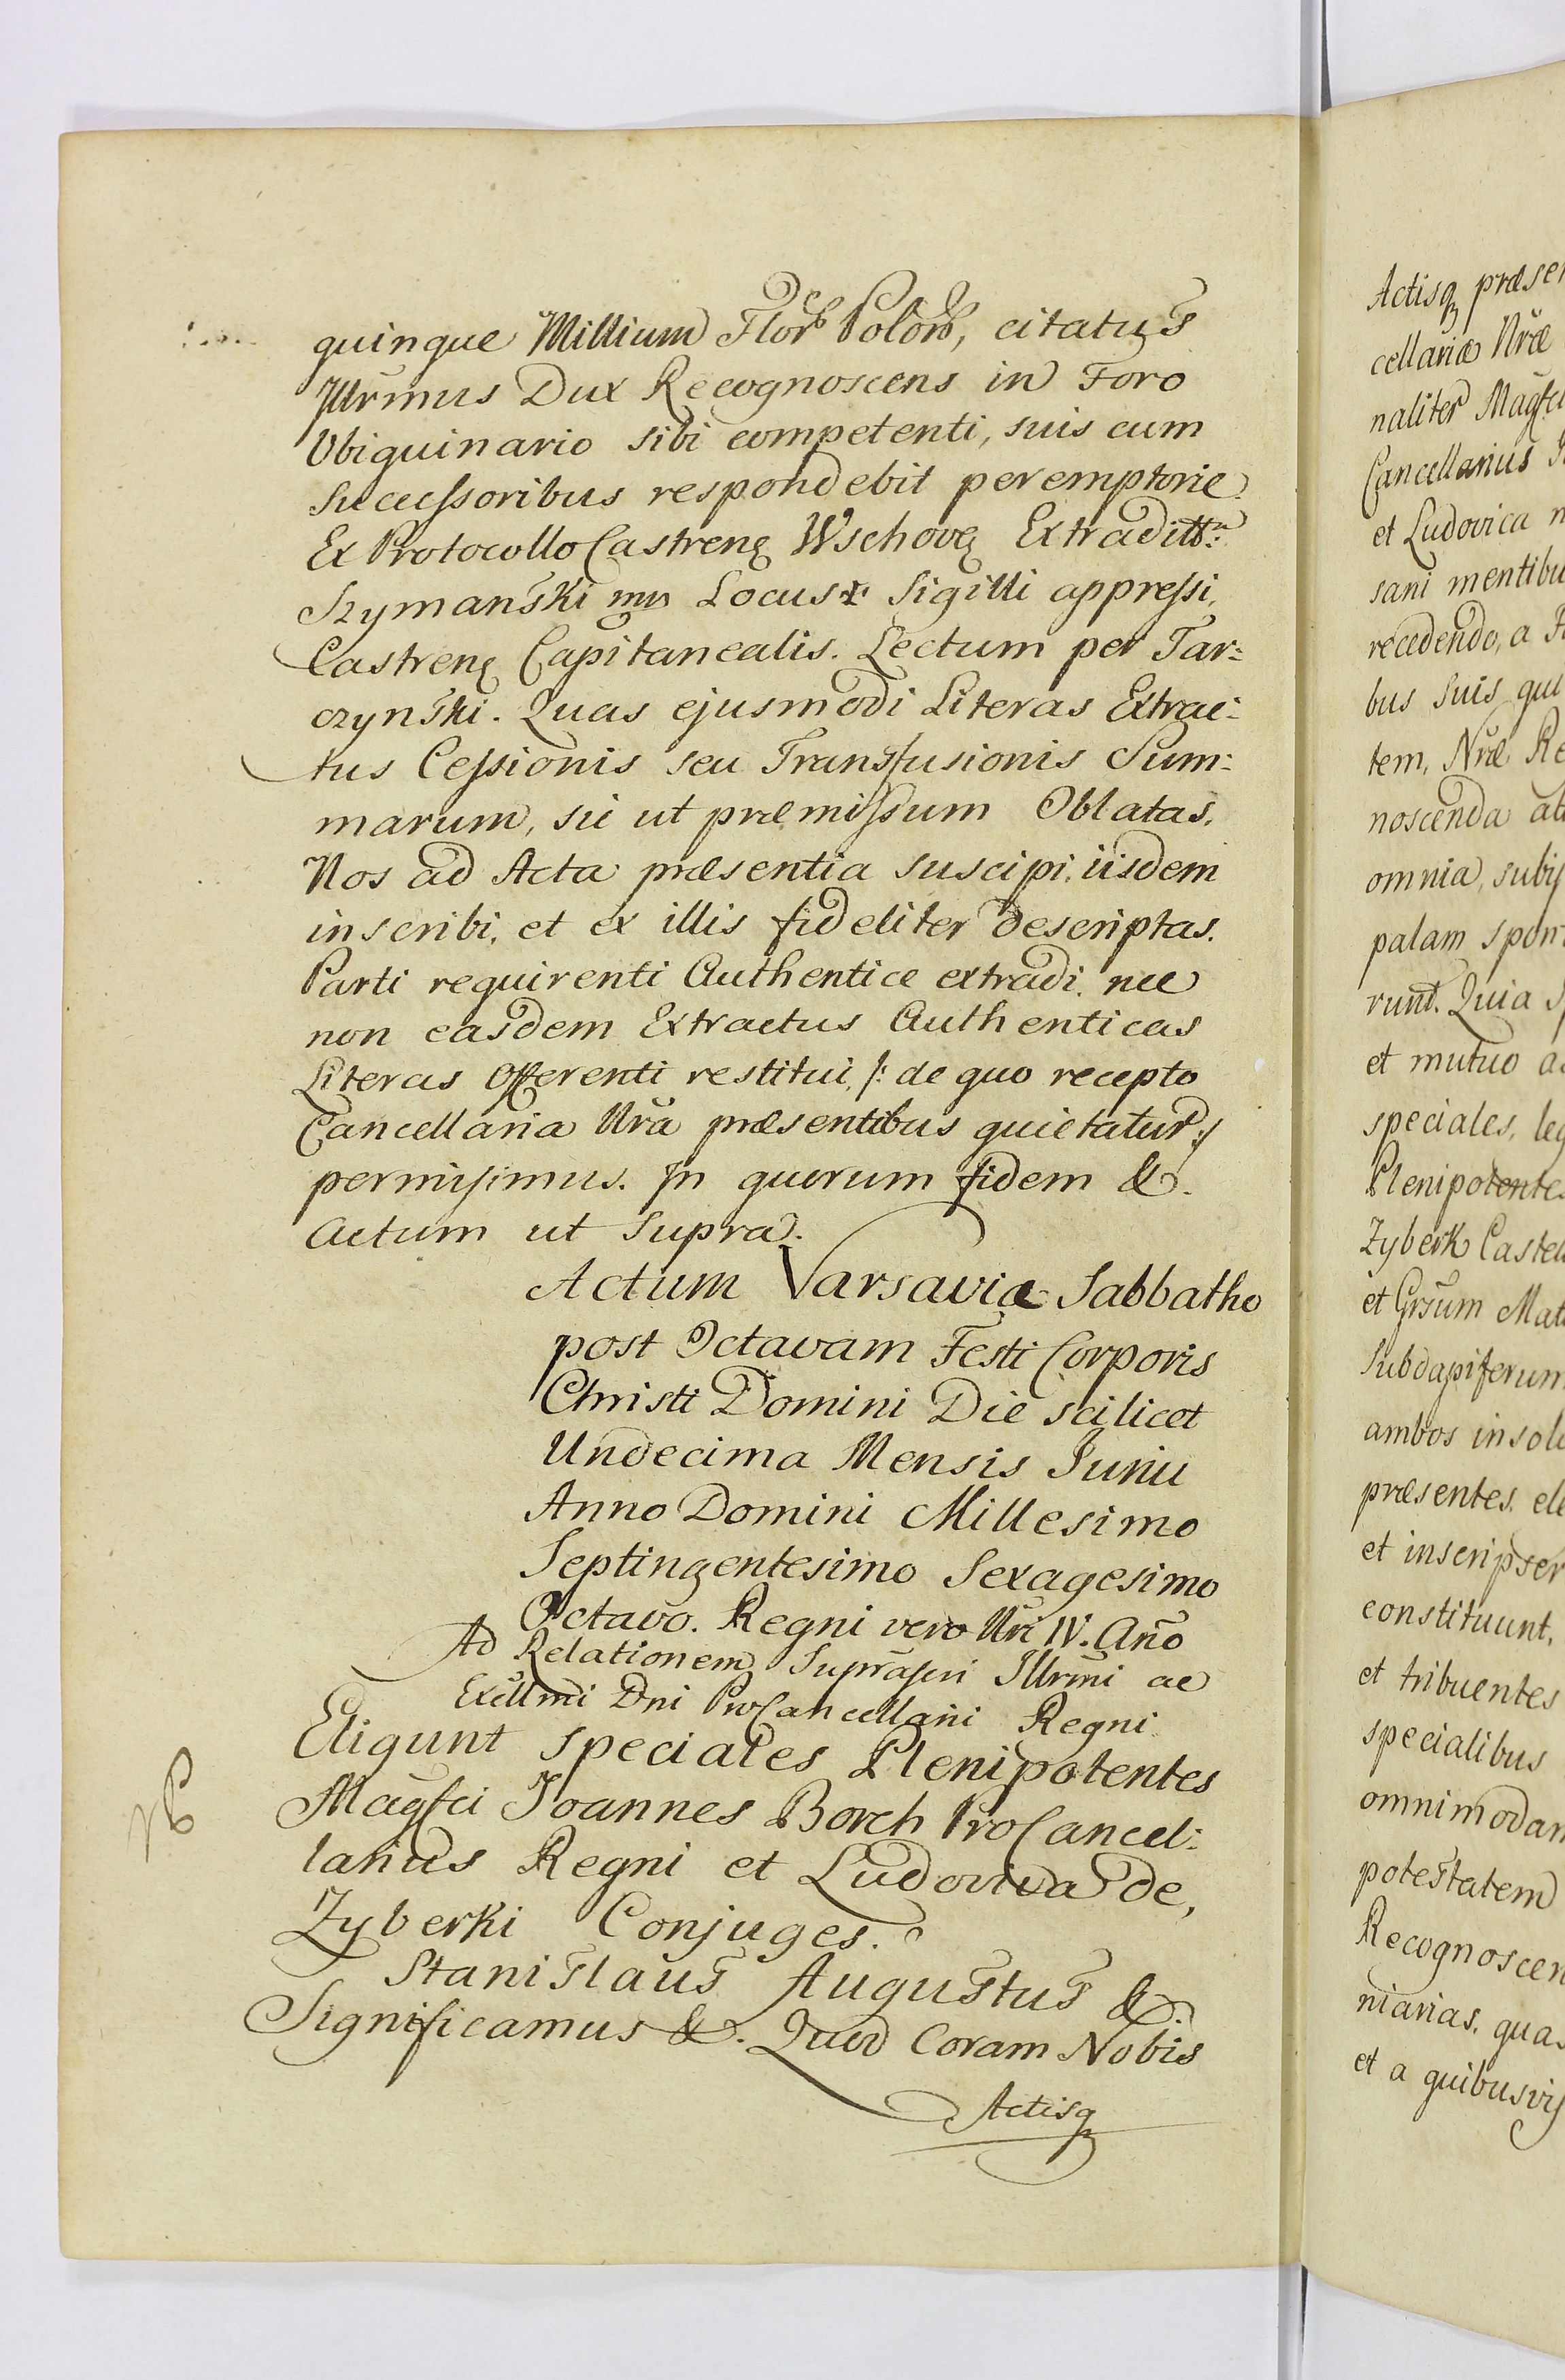 quinque Millium Flor Polor, citatus
Illrmus Dux Recognoscens in Foro
Ubiquinario sibi competenti, suis cum
Successoribus respondebit peremptorie
Ex Protocollo Castren Wschoven Extradittm:
Szymanski mp Locus Sigilli appressi,
Castren Capitanealis. Lectum per Tar=
czynski. Quas ejusmodi Literas Extrac=
tus Cessionis seu Transfusionis Sum=
marum, sic ut præmissum Oblatas.
Nos ad Acta præsentia suscipi, iisdem
inscribi, et ex illis fideliter descriptas.
Parti requirenti Authentice extradi, nec
non easdem Extractus Authenticas
Literas Offerenti restitui, /: de quo recepto
Cancellaria Nra præsentibus quietatur :/
permisimus. In quorum fidem &.
Actum ut Supra.
Actum Varsaviæ Sabbatho
post Octavam Festi Corporis
Christi Domini Die scilicet
Undecima Mensis Junii
Anno Domini Millesimo
Septingentesimo Sexagesimo
Octavo. Regni vero Nri IV. Año
Ad Relationem Suprascri Illrmi ac
Excellmi Dni ProCancellarii Regni
Eligunt speciales Plenipotentes
Magfci Joannes Borch ProCancel=
larius Regni et Ludovica de,
Zyberki Conjuges.
Stanislaus Augustus &.
Significamus &. Quod Coram Nobis
Actisq
Actisq præsen
cellariæ Nræ
naliter Magfci
Cancellarius
et Ludovica
sani mentibu
recedendo, a
bus suis, qui
tem, Nræ Re
noscenda
omnia, subis
palam spon
runt. Quia
et mutuo
speciales, leg
Plenipotentes
Zyberk Castel
et Grsum Mat
Subdapiferum
ambos insoli
præsentes. ele
et inscripser
constituunt,
et tribuentes
specialibus
omnimodam
potestatem
Recognoscen
niarias, quas
et a quibusvis